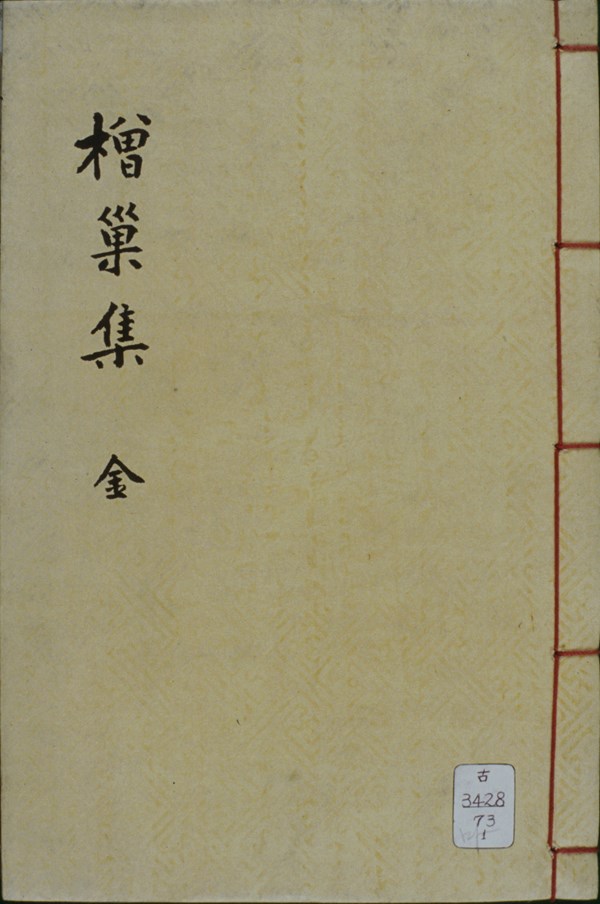 橧巢集 金
古
3428
73
1